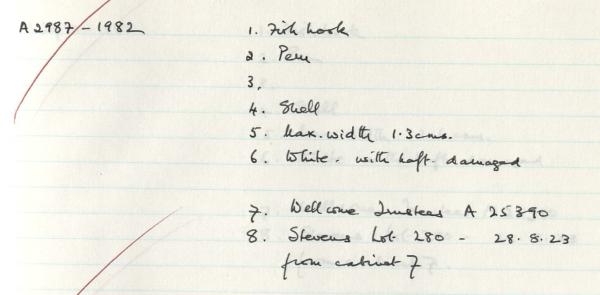 A 2987 - 1982
1. Fish hook
2. Peru
3.
4. Shell
5. Max. width 1.3 cms.
6. White. with haft damaged
7. Wellcome Trustees A 25390
8. Stevens Lot 280 - 28.8.23
from cabinet 7